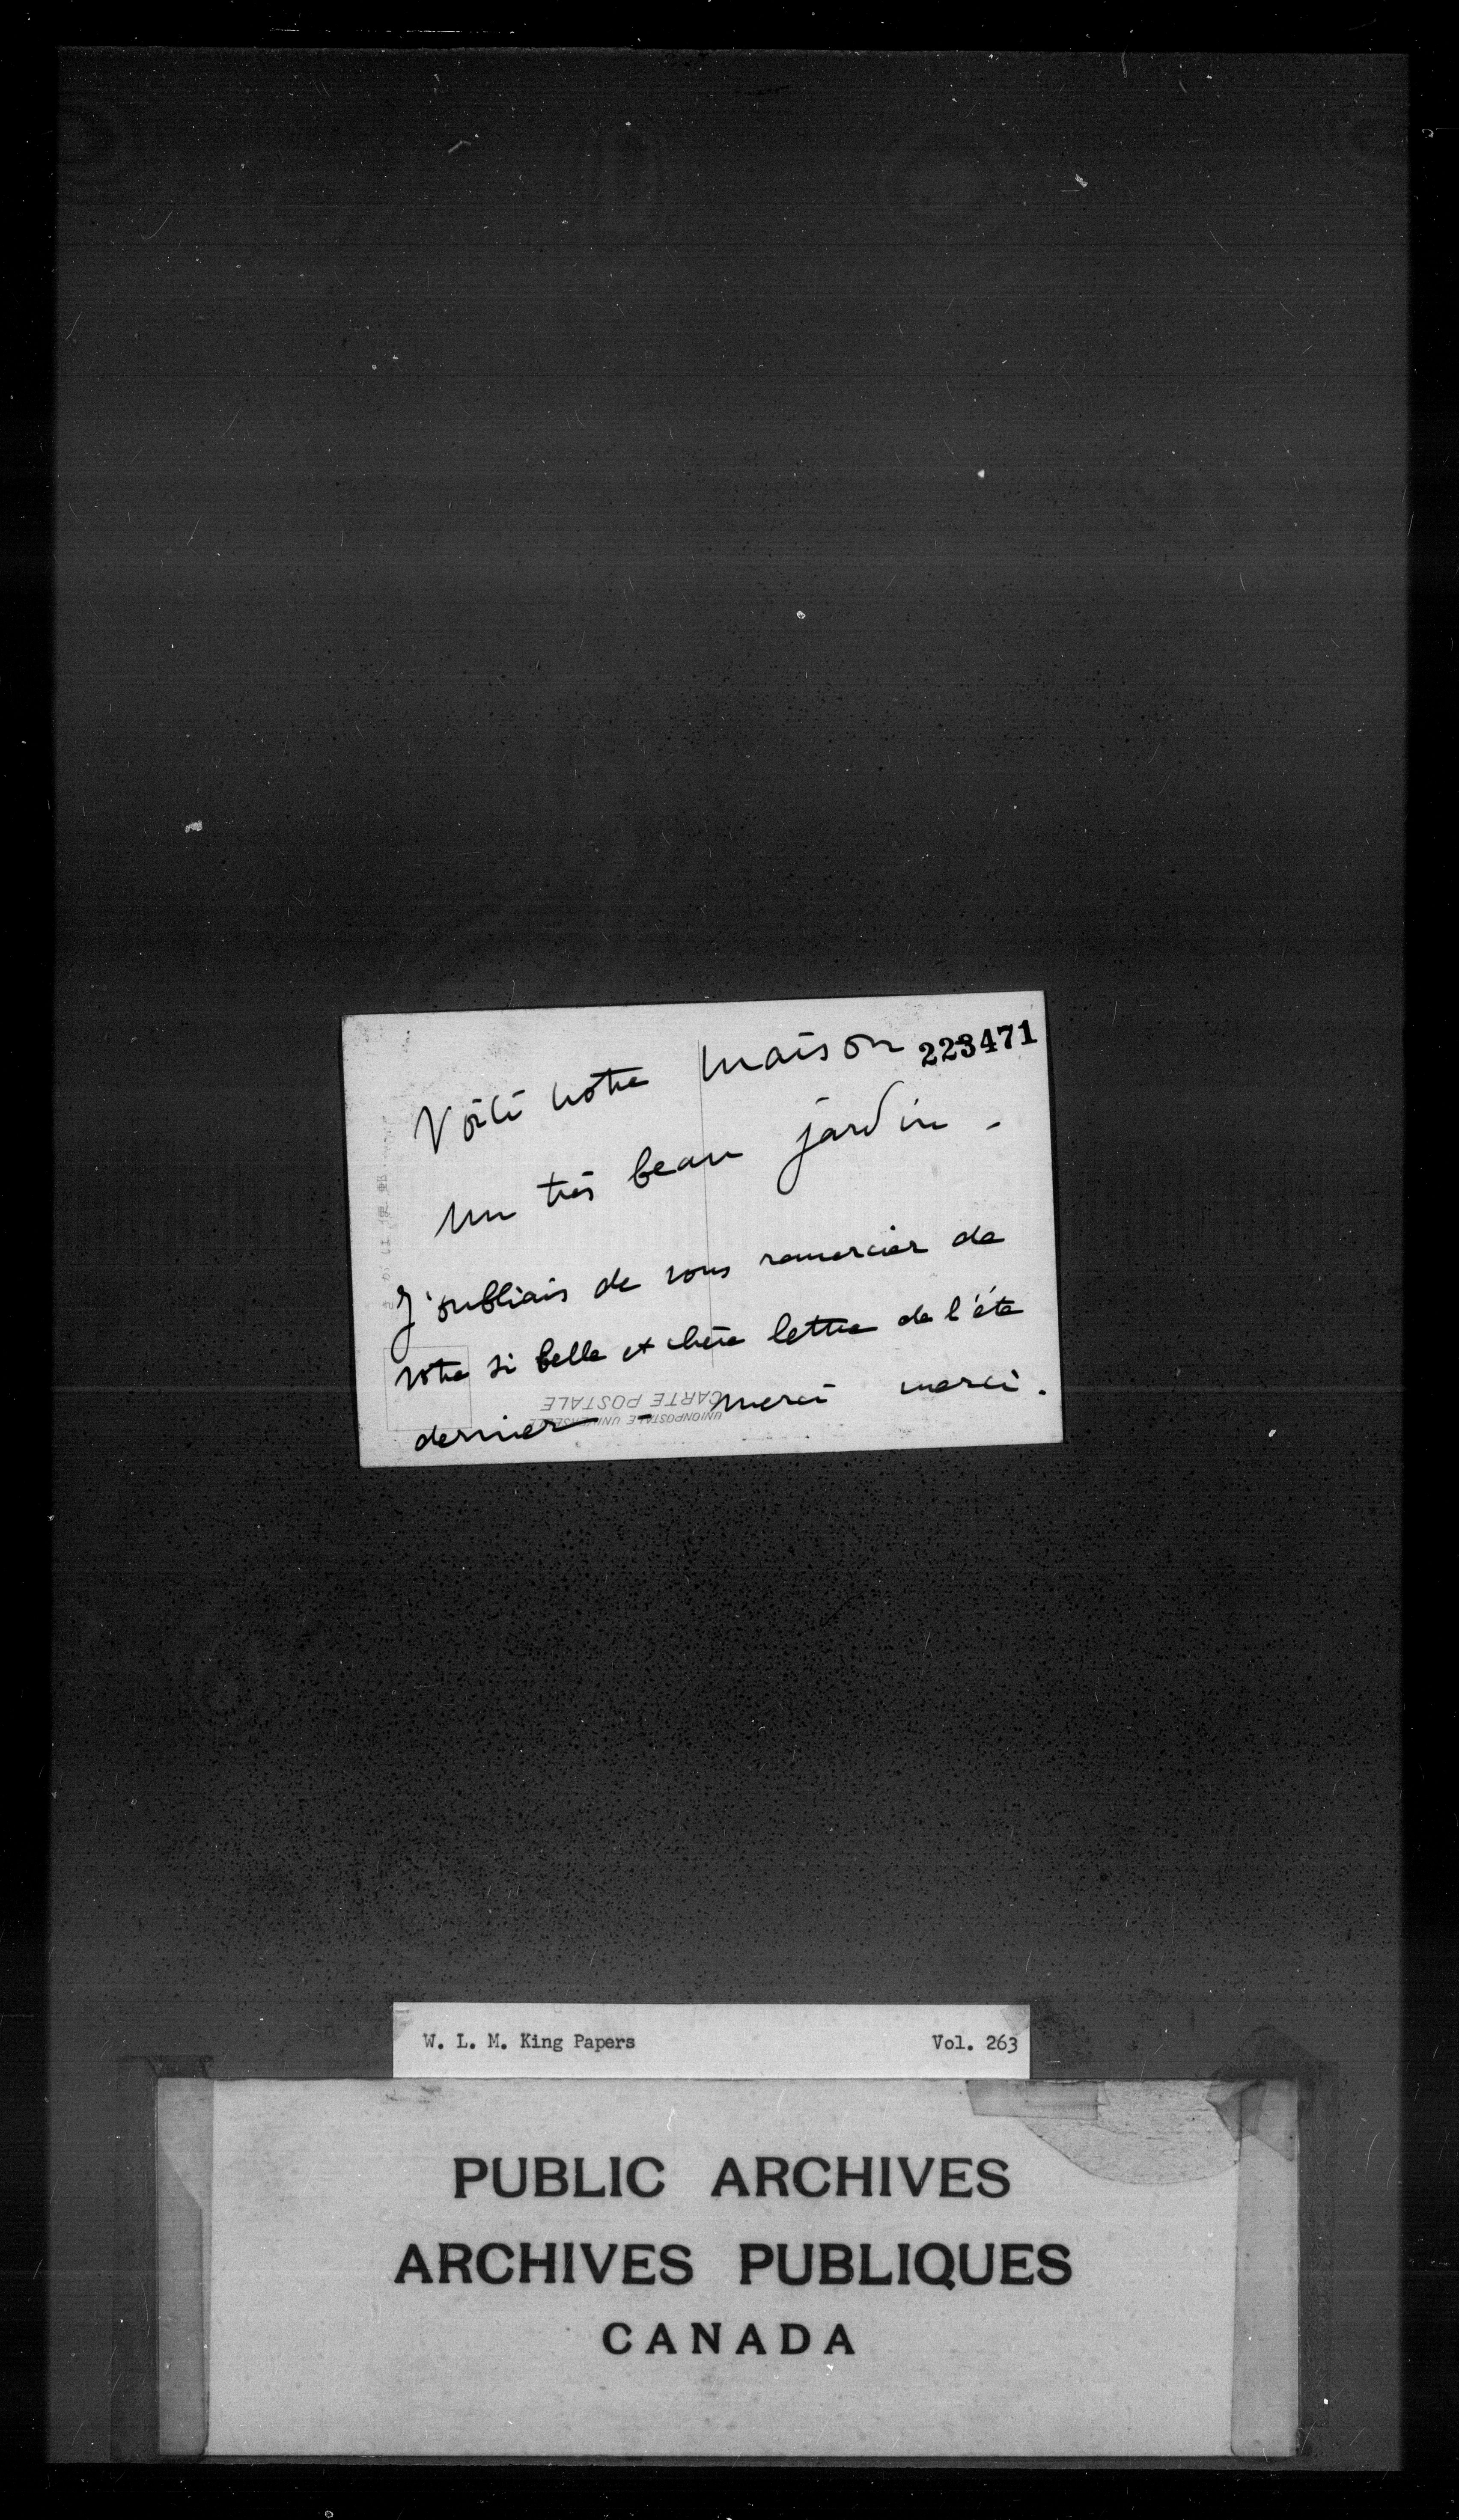 Voilà notre maison 223471
un très beau jardin -
J'oubliais de vous remercier de
votre si belle et chère lettre de l'été
dernier - merci merci.
CARTE POSTALE
UNION POSTALE UNIVERSELLE
W. L. M. King Papers Vol. 263
PUBLIC ARCHIVES
ARCHIVES PUBLIQUES
CANADA